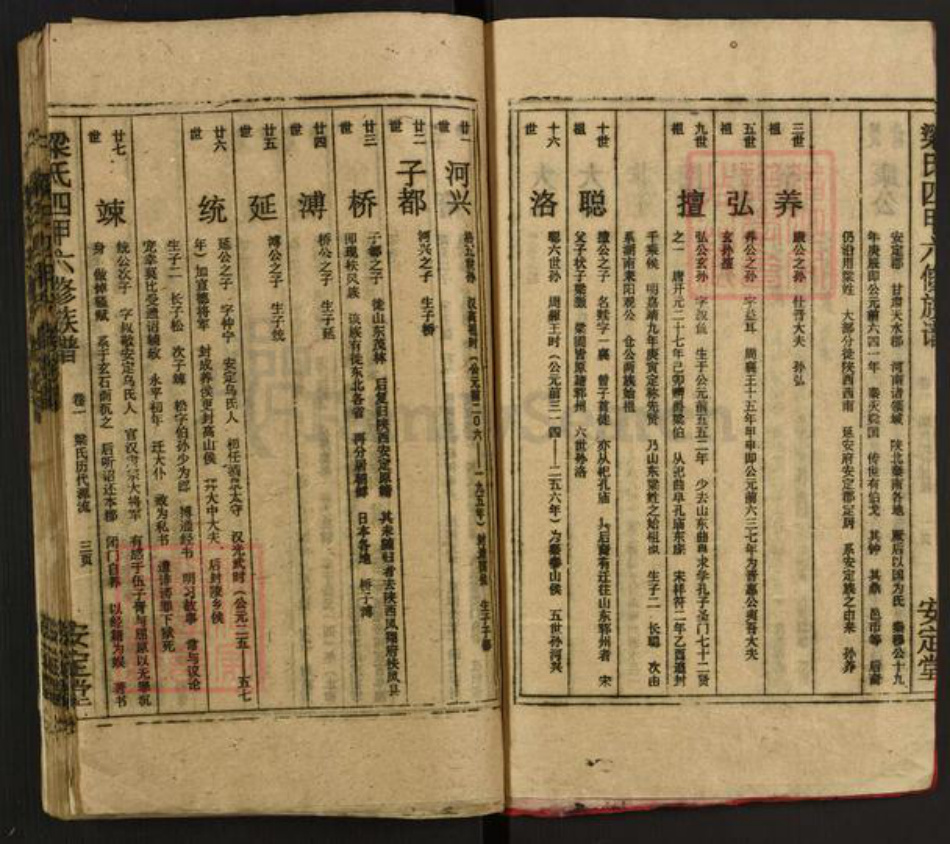 梁氏四甲六修族谱
安定堂
安定郡 甘肃天水郡 河南诸领城 陕北秦南各地 厥后以国为氏 秦穆公十九
年庚辰即公元前六四一年 秦灭梁国 传世有伯戈 其钟 其鼎 邑币等 后裔
仍沿用梁姓 大部分徙陕西西南 延安府安定郡定居 系安定族之由来 孙养
三世祖 养 康公之孙 仕晋大夫 孙弘
五世祖 弘 养公之孙 字益耳 周襄王十五年甲申即公元前六三七年为晋惠公夷吾大夫
玄孙擅
九世祖 擅 弘公玄孙 字淑鱼 生于公元前五五二年 少去山东曲阜求学孔子圣门七十二贤
之一 唐开元二十七年己卯赠爵梁伯 从祀曲阜孔庙东庑 宋祥符二年乙酉追封
千乘侯 明嘉靖九年庚寅定称先贤 乃山东梁姓之始祖也 生子二 长聪 次由
系湖南耒阳观公 仓公两族始祖
十世祖 聪 擅公之子 名赃字一襄 曾子首徒 亦从祀孔庙 其后裔有迁往山东郓州者 宋
父子状子梁灏 梁固皆原籍郓州 六世孙洛
十六世 洛 聪六世孙 周赧王时（公元前三一四——二五六年）为秦泰山侯 五世孙河兴
廿一世 河兴 洛五世孙 汉高祖时（公元前二〇六——一九五年） 生子子都
廿二世 子都 河兴之子 生子桥
廿三世 桥 子都之子 徙山东茂林 后复归陕西安定原籍 其未随归者去陕西凤翔府扶风县
即现扶风族 该族有徙东北各省 再分居朝鲜 日本各地 桥子溥
廿四世 溥 桥公之子 生子延
廿五世 延 溥公之子 生子统
廿六世 统 延公之子 字仲宁 安定乌氏人 初任酒泉太守 汉光武时（公元二五——五七
年）加宣德将军 封成养侯更封高山侯 升大中大夫 后封陵乡侯
生子二 长子松 次子竦 松字伯孙少为郎 博通经书 明习故事 常与议论
宠幸莫比受遗诏辅政 永平初年 迁太仆 数为私书 遭诽谤罪下狱死
廿七世 竦 统公次子 字叔敬安定乌氏人 官汉 大将军 有感于伍子胥与屈原以无辜沉
身 做悼骚赋 系于玄石而沉之 后听诏还本郡 闭门自养 以经籍为娱 著书
梁氏四甲六修族谱 卷一 梁氏历代源流 三页 安定堂